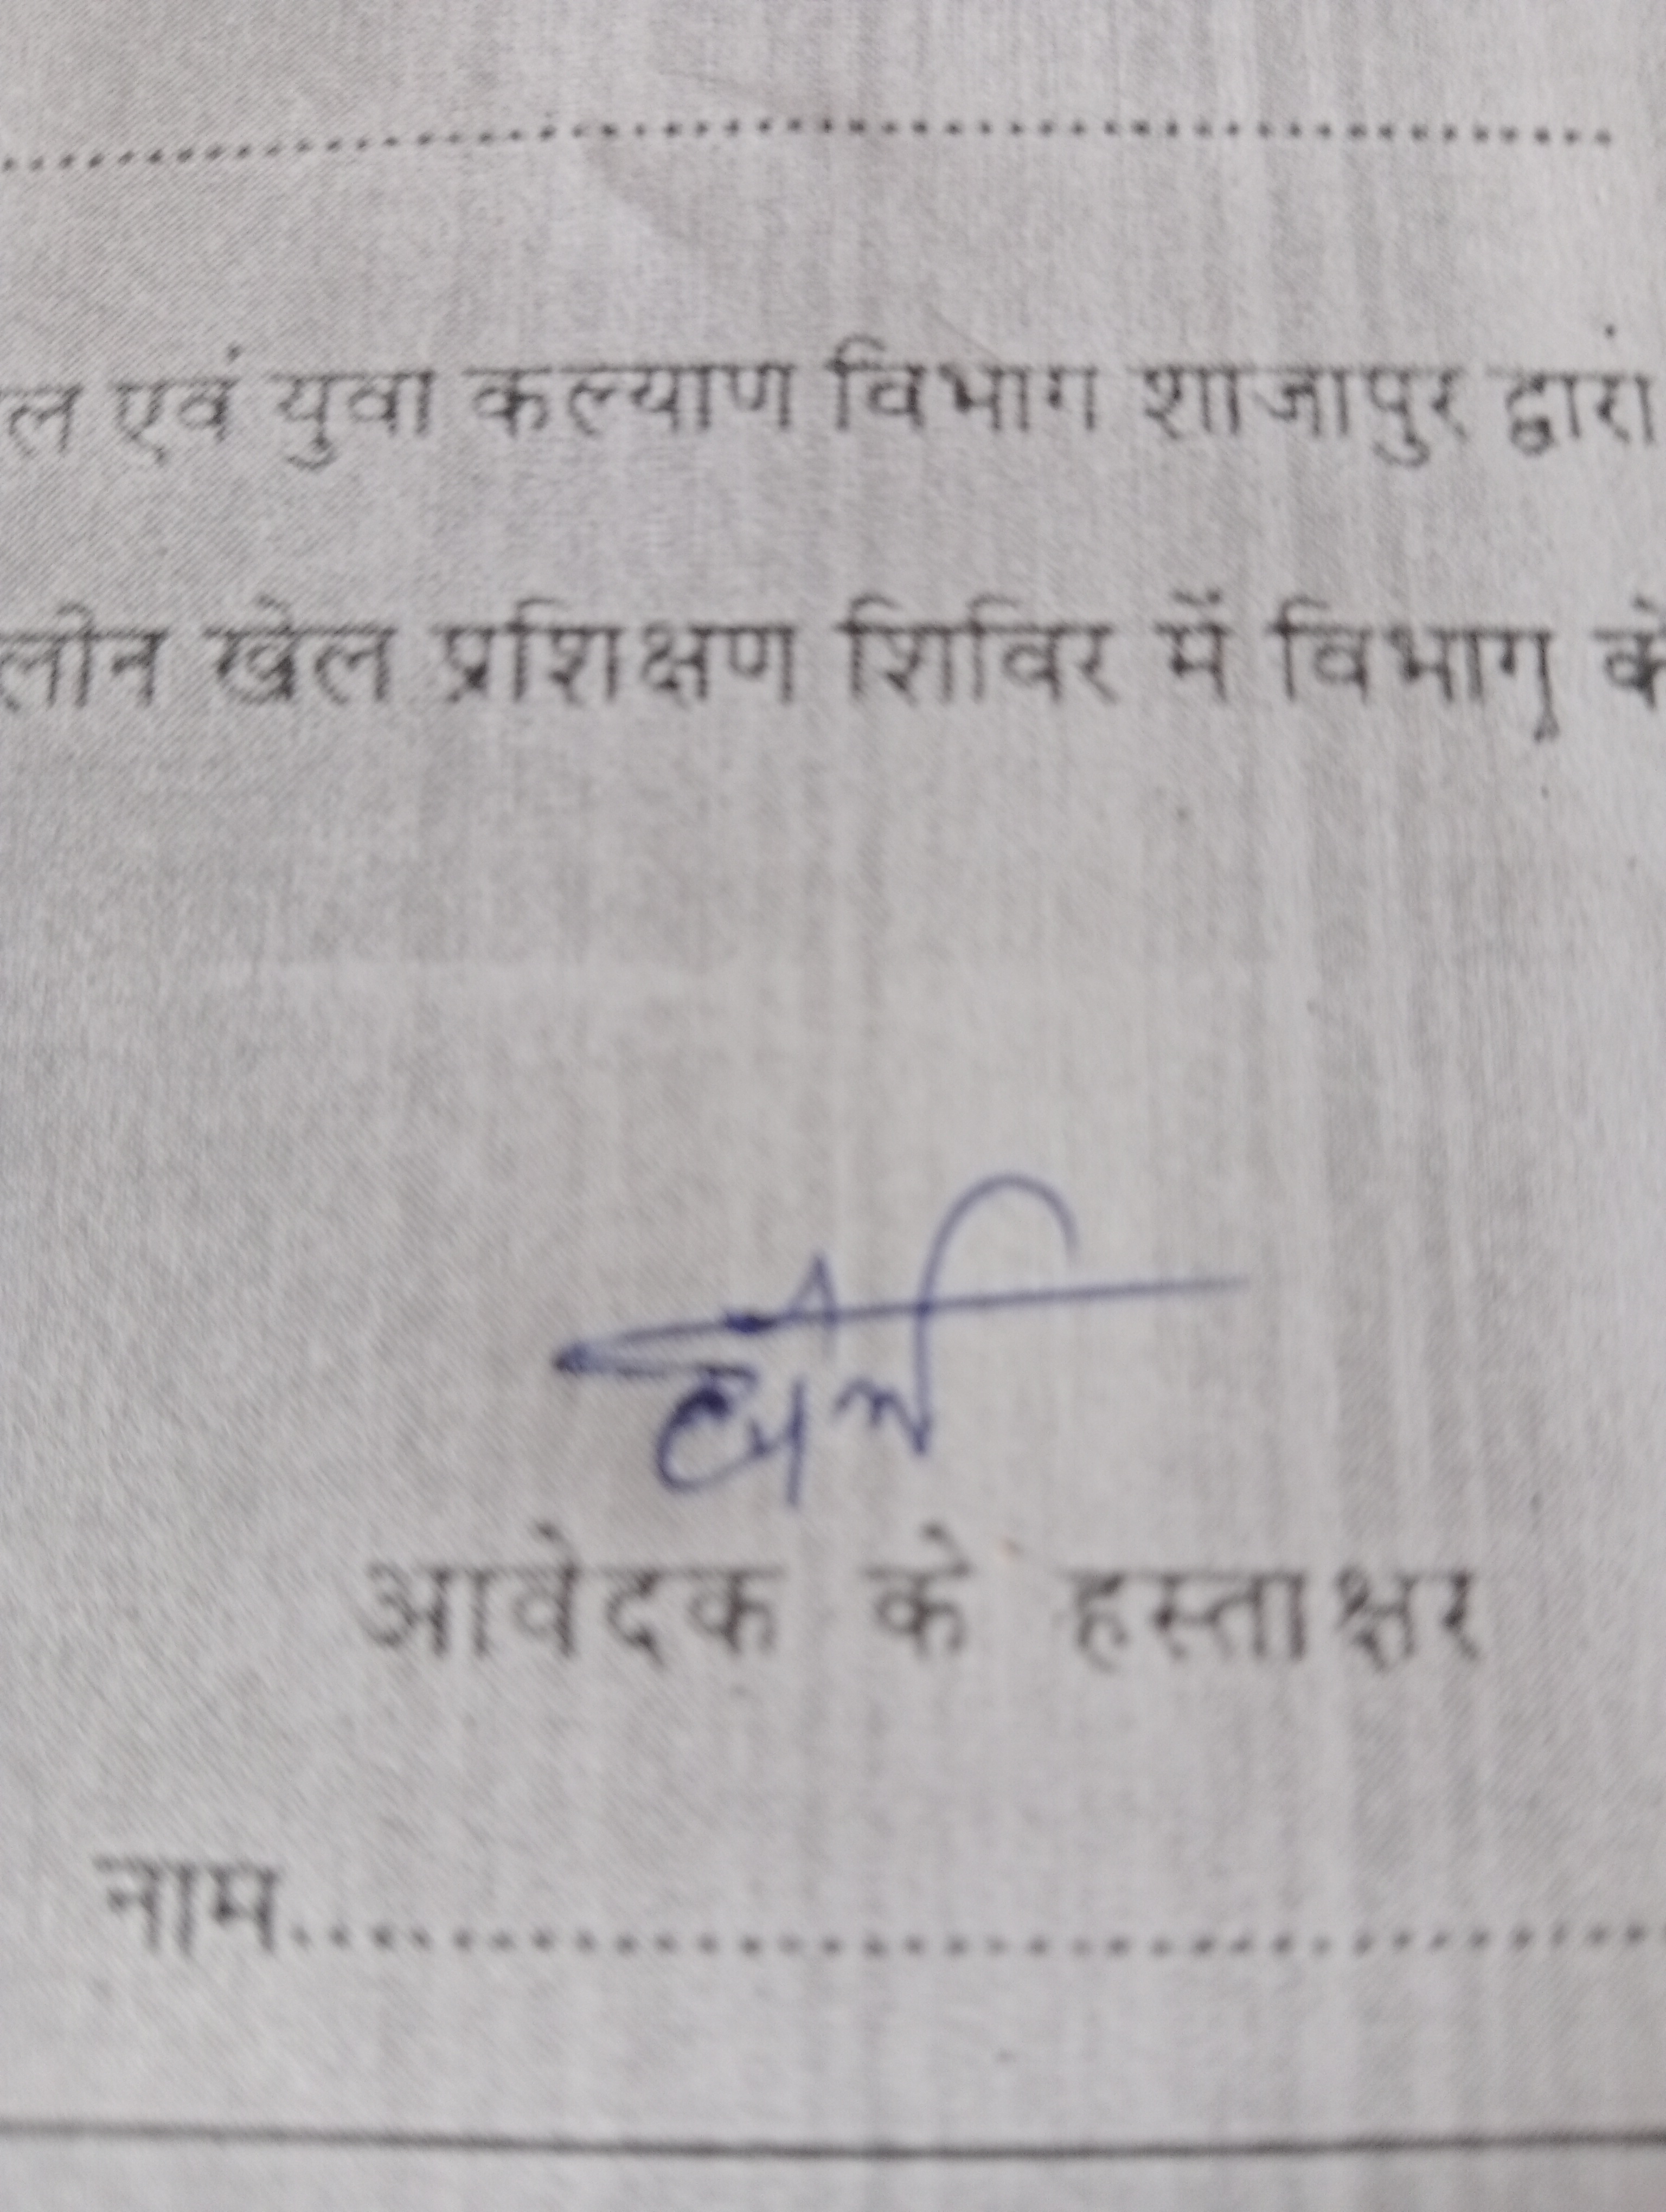 ल एवं युवा कल्याण विभाग शाजापुर द्वारा
लीन खेल प्रशिक्षण शिविर में विभाग के
आवेदक के हस्ताक्षर
नाम................................